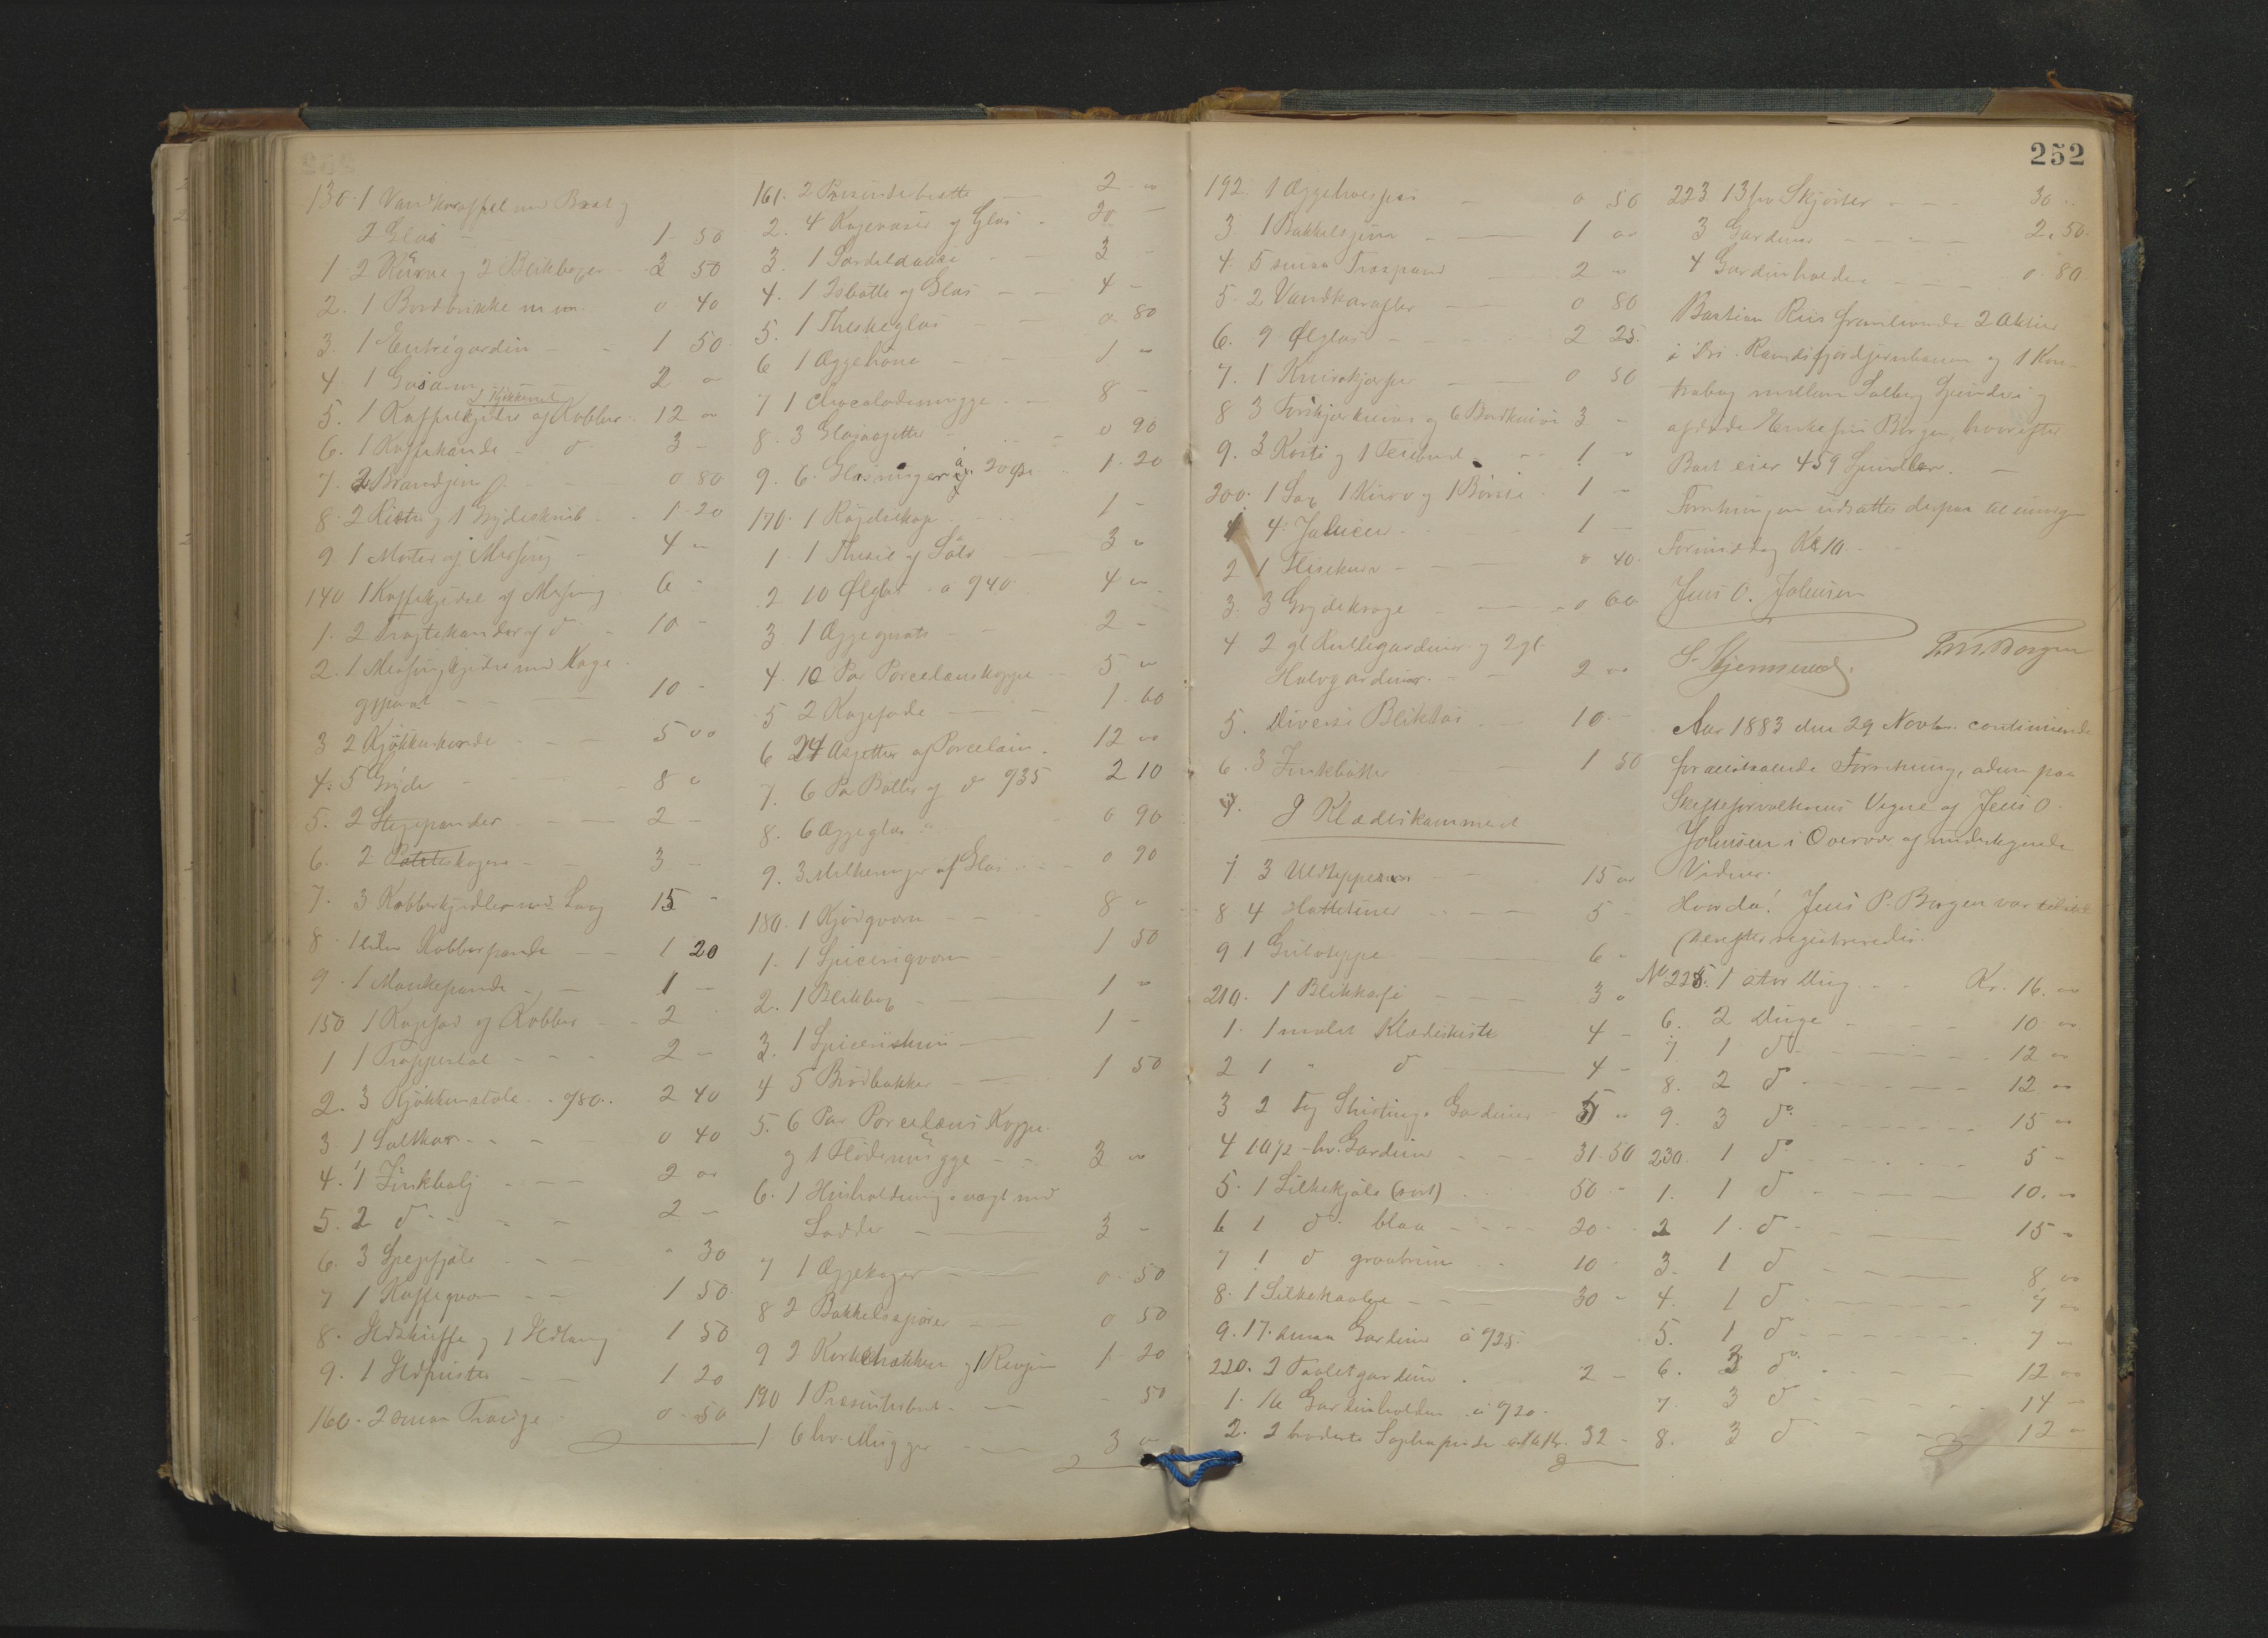 252
130. 1 Vandkaraffel med Bret og
2 Glas 1. 50
1 2 Kurve og 2 Blikboxer 3 50
2. 1 Bordbrikke m.m. 0 40
3. 1 Entrégardin 1 50
4. 1
I Kjøkkenet
5. 1 Kaffekjedel af Kobber 12 00
6. 1 Kaffekande d 3 –
7. 2 Brandjern 0 80
8. 2 Riste og 1 Grydeskrub 1. 20
9 1 Morter af Messing 4 00
140 1 Kaffekjedel af Messing 6 –
1. 2 Tragtekander af d 10 –
2. 1 Messingkjedel med Koge
apparat 10 –
3 2 Kjøkkenborde 5 00
4. 5 Gryder 8 00
5. 2 Stegepander 2 –
6. 2 Poteteskogere 3 –
7. 3 Kobberkjedler med Laag 15 –
8 1 liden Kobberpande 1 20
9. 1 Munkepande 1 –
150 1 Kagefad af Kobber 2
1 1 Trappestol 2 –
2. 3 Kjøkkenstole 980 2 40
3 1 Saltkar 0 40
4. 1 Zinkbalj 2 00
5. 2 d 2 –
6. 3 Spegfjøle " 30
7 1 Kaffeqvern 1 50
8. Ildskuffe og 1 Ildtang 1 50
9. 1 Ildpuster 1 20
160. 2 smaa Trauge 0 50
161. 2 Presenterbrette 2 00
2. 4 Kagevaser af Glas 20 –
3. 1 Sardeldaase 3 –
4. 1 Isbøtte af Glas 4 –
5. 1 Theskeglas 0 80
6 1 Æggehøne 1 00
7 1 Chocolademugge 8 –
8. 3 Glasasjetter 0 90
9. 6. Glasringer à 20 Øre 1. 20
170. 1 1 –
1. 1 Thesil af Sølv 3 00
2 10 Ølglas à 940 4 00
3 1 2 –
4. 10 Par Porcelænskopper 5 00
5 2 Kagefade 1. 60
6 24 Asjetter af Porcelain 12 00
7. 6 Par Boller af d 935 2 10
8. 6 Æggeglas 0 90
9. 3 Melkeringer af Glas 0 90
180. 1 Kjødqvern 8 00
1. 1 Spiceriqvern 1 50
2. 1 Blikbox 1 00
3. 1 1 –
4 5 Brødbakker 1 50
5. 6 Par Porcelæns Kopper
og 1 Flødemugge 3 00
6. 1 med
Lodder 3 –
7 1 Æggekoger 0. 50
8 2 Bakkelssporer 0 50
9 2 Korketrækker og 1 Rivjern 1. 20
190 1 Presenterbret – 50
1 6 hv. Mugger 3 00
192. 1 0 50
3. 1 Bakkelsjern 1 00
4. 5 smaa Træspand 2 00
5. 2 Vandkarafler 0 80
6. 9 Ølglas 2 25
7. 1 0 50
8 3 Forskjærknive og 6 Bordknive 3 –
9. 3 Koste og 1 Feiebret 1 00
200. 1 Sax 1 Kurv og 1 Børste 1 –
1 4 Jalusier 1 –
2 1 Flisekurv 0 40
3. 3 Grydekroge 0 60
4 2 gl Rullegardiner og 2 gl
Halvgardiner 2 00
5. Diverse Bliktøi 10. –
6. 3 Zinkbøtter 1 50
I Klædeskammeret
7 3 Uldtepper 15 00
8 4 Hatteturer 5 –
9 1 Gulvteppe 6 –
210. 1 Blikkasse 3 0
1. 1 malet Klædeskiste 4 –
2 1 " d 4 –
3 2 Fag Shirtings Gardiner 5 00
4 10½ – hv. Gardiner 31. 50
5. 1 Silkekjole (sort) 50 –
6 1 d blaa 20 –
7 1 d graabrun 10 –
8. 1 Silkekaabe 30 –
9. 17. smaa Gardiner à 925
220. 2 Toiletgardiner 2 –
1. 16 Gardinholdere à 920
2. 2 broderte Sophapuder à 16 Kr. 32 –
223. 13 hv Skjørter 30
3 Gardiner 2. 50
4 Gardinholdere 0. 80
Bastian Riis fremlevende 2 Aktier
i Dr.. Randsfjordjernbanen og 1 Kon-
trabog mellem Solberg Spinderi og
afdøde Borgen, hvorefter
Boet eier 459 Spindler.
Forretningen udsattes derpaa til imorgen
Formiddag Kl 10.
Jens O. Johnsen
S. Hjermerud. P.M. Borgen
Aar 1883 den 29 Novbr. continuerede
foranstaaende Forretning, adm. paa
Skifteforvalterens Vegne af Jens O.
Johnsen i Overvær af undertegnede
Vidner.
Hvorda! Jens P. Borgen var tilstede
herefter registreredes.
No 225. 1 stor Dug Kr. 16. 00
6. 2 Duge 10 00
7. 1 d 12 00
8. 2 d 12 00
9. 3 do 15 00
230. 1 do 5 –
1. 1 d 10. 00
2 1. d 15 –
3. 1 d 8 00
4. 1 d 7 00
5. 1 d 7 –
6. 3 do 12 00
7. 3 d 14 –
8. 3 d 12 00